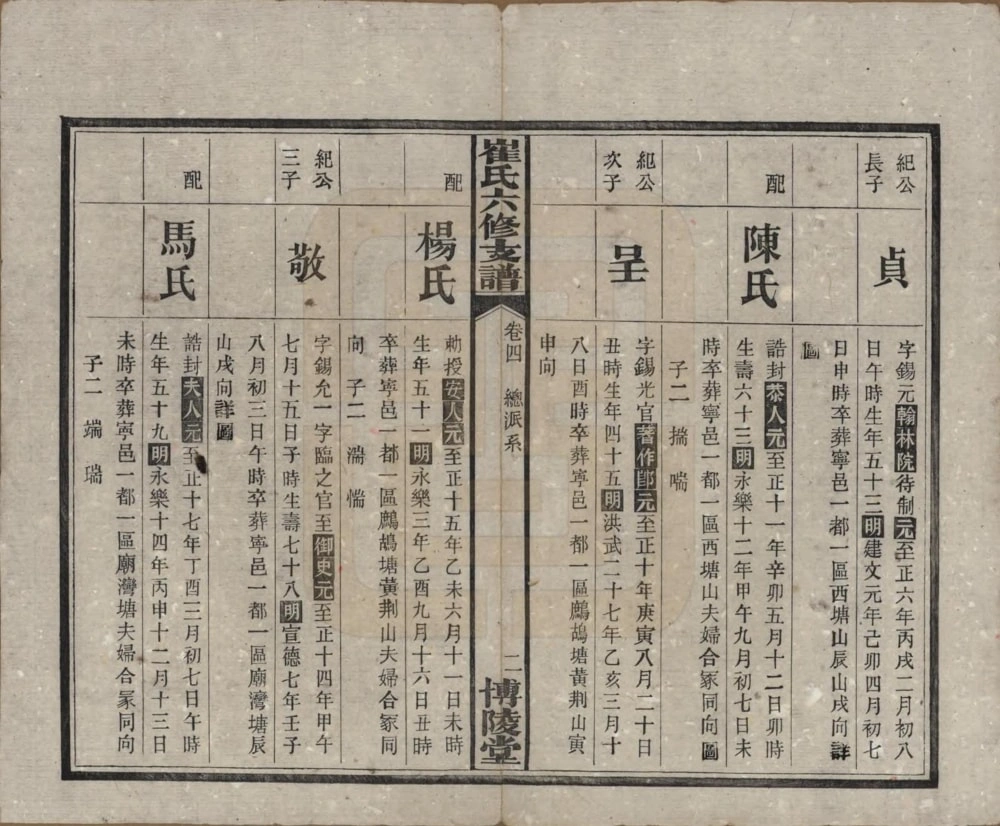 紀公
長子
貞
字錫元翰林院待制元至正六年丙戌二月初八
日午時生年五十三明建文元年己卯四月初七
日申時卒葬寧邑一都一區西塘山辰山戌向詳
圖
配
陳氏
誥封恭人元至正十一年辛卯五月十二日卯時
生壽六十三明永樂十二年甲午九月初七日未
時卒葬寧邑一都一區西塘山夫婦合冢同向圖
子二 揣 喘
紀公
次子
呈
字錫光官著作郎元至正十年庚寅八月二十日
丑時生年四十五明洪武二十七年乙亥三月十
八日酉時卒葬寧邑一都一區鷓鴣塘黃荆山寅
申向
崔氏六修支譜
卷四 總派系
二
博陵堂
配
楊氏
勅授安人元至正十五年乙未六月十一日未時
生年五十一明永樂三年乙酉九月十六日丑時
卒葬寧邑一都一區鷓鴣塘黃荆山夫婦合冢同
向 子二 湍 惴
紀公
三子
敬
字錫允一字臨之官至御史元至正十四年甲午
七月十五日子時生壽七十八明宣德七年壬子
八月初三日午時卒葬寧邑一都一區廟灣塘辰
山戌向詳圖
配
馬氏
誥封夫人元至正十七年丁酉三月初七日午時
生年五十九明永樂十四年丙申十二月十三日
未時卒葬寧邑一都一區廟灣塘夫婦合冢同向
子二 端 瑞